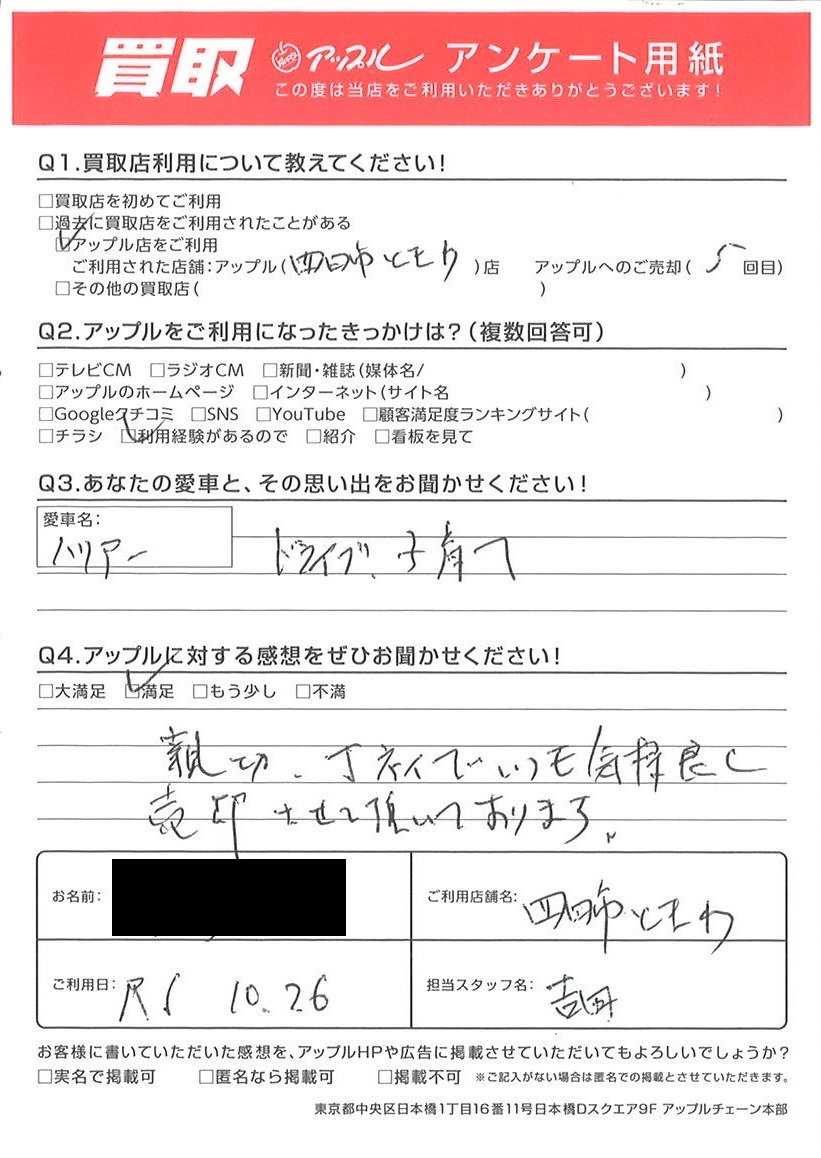 買取 アップル アンケート用紙
この度は当店をご利用いただきありがとうございます！
Q1.買取店利用について教えてください！
□買取店を初めてご利用
□過去に買取店をご利用されたことがある
☑アップル店をご利用
ご利用された店舗：アップル（四日市ともわ）店 アップルへのご売却（5回目）
□その他の買取店（ ）
Q2.アップルをご利用になったきっかけは？（複数回答可）
□テレビCM □ラジオCM □新聞・雑誌（媒体名/ ）
□アップルのホームページ □インターネット（サイト名 ）
□Googleクチコミ □SNS □YouTube □顧客満足度ランキングサイト（ ）
□チラシ ☑利用経験があるので □紹介 □看板を見て
Q3.あなたの愛車と、その思い出をお聞かせください！
愛車名：
ハリアー ドライブ、子育て
Q4.アップルに対する感想をぜひお聞かせください！
□大満足 ☑満足 □もう少し □不満
親切、丁ネイでいつも気持良く
売却させて頂いております。
お名前： ご利用店舗名：四日市ともわ
ご利用日：R5 10.26 担当スタッフ名：吉田
お客様に書いていただいた感想を、アップルHPや広告に掲載させていただいてもよろしいでしょうか？
□実名で掲載可 □匿名なら掲載可 □掲載不可 ※ご記入がない場合は匿名での掲載とさせていただきます。
東京都中央区日本橋1丁目16番11号日本橋Dスクエア9F アップルチェーン本部